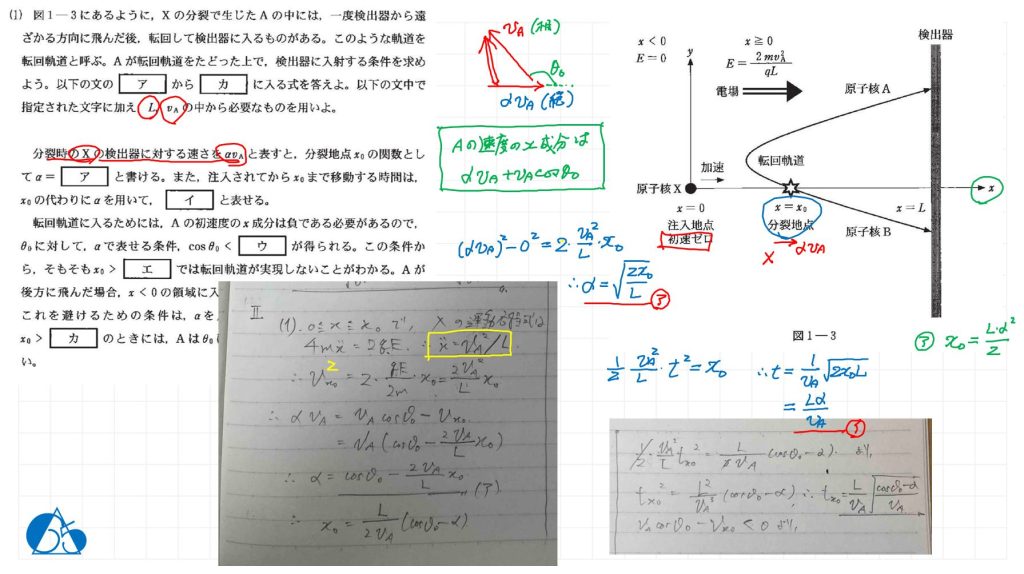 (1) 図1―3にあるように，Xの分裂で生じたAの中には，一度検出器から遠
ざかる方向に飛んだ後，転回して検出器に入るものがある。このような軌道を
転回軌道と呼ぶ。Aが転回軌道をたどった上で，検出器に入射する条件を求め
よう。以下の文の ア から カ に入る式を答えよ。以下の文中で
指定された文字に加え，L，vAの中から必要なものを用いよ。
分裂時のXの検出器に対する速さをαvAと表すと，分裂地点x0の関数とし
てα＝ ア と書ける。また，注入されてからx0まで移動する時間は，
x0の代わりにαを用いて， イ と表せる。
転回軌道に入るためには，Aの初速度のx成分は負である必要があるので，
θ0に対して，αで表せる条件，cosθ0＜ ウ が得られる。この条件か
ら，そもそもx0＞ エ では転回軌道が実現しないことがわかる。Aが
後方に飛んだ場合，x＜0の領域に入
これを避けるための条件は，αを
x0＞ カ のときには，Aはθ0
い。
vA (相)
θ0
αvA (系)
Aの速度のx成分は
αvA+vAcosθ0
(αvA)²-0²=2・vA²/L・x0
∴α=√(2x0/L)
ア
x＜0
E＝0
y
x≧0
E＝2mvA²/qL
電場
検出器
原子核A
転回軌道
加速
原子核X
x
x＝0
注入地点
初速ゼロ
x＝x0
分裂地点
x＝L
原子核B
X
αvA
図1―3
ア x0=L・α²/2
1/2 vA²/L・t²=x0 ∴t=1/vA √(2x0L)
=Lα/vA
イ
Ⅱ
(1). 0≦x≦x0 で, Xの運動方程式は
4mẍ=2qE. ∴ẍ=vA²/L.
∴Vx0²=2・qE/2m・x0=2vA²/L x0
∴αvA=vAcosθ0-Vx0
=vA(cosθ0-2vA/L x0)
∴α=cosθ0-2vA/L x0 (ア)
∴x0=L/2vA(cosθ0-α)
1/2・vA²/L tx0²=L/2vA(cosθ0-α). より,
tx0²=L²/vA³(cosθ0-α) ∴tx0=L/vA√(cosθ0-α/vA)
vAcosθ0-Vx0<0 より,